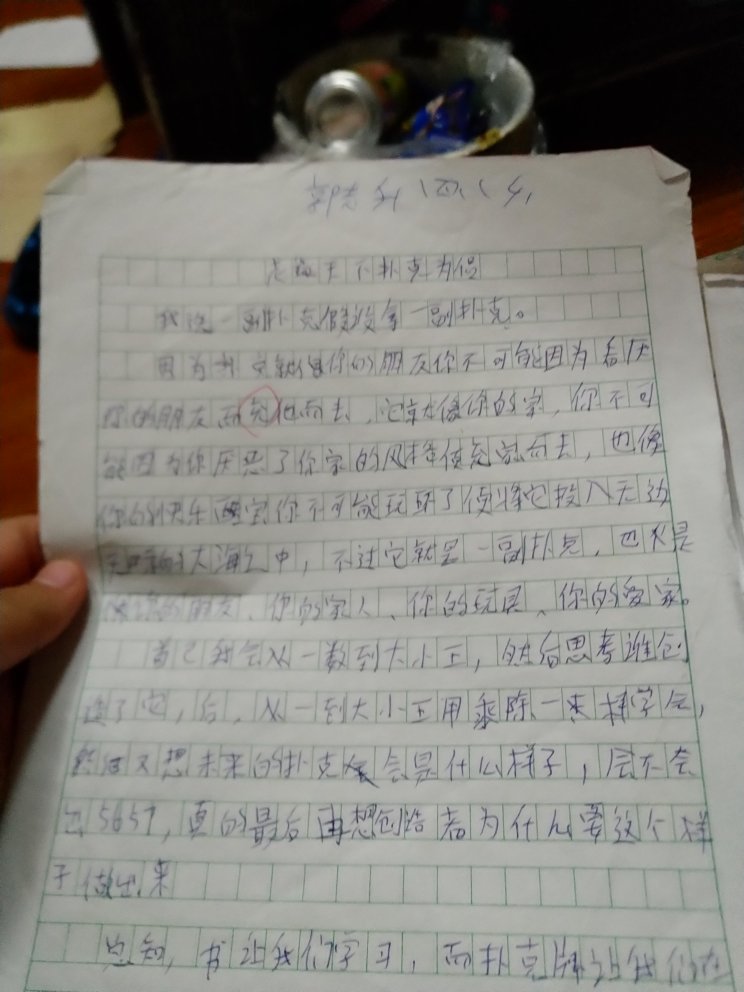 天下扑克为侣
我说一副扑克便没拿一副扑克。
因为扑克就像你的朋友你不可能因为看厌
你的朋友而他而去，它就像你的家，你不可
能因为你厌恶了你家的风格便家而去，也像
你的快乐你不可能玩坏了便将它投入无边
大海之中，不过它就是一副扑克，也只是
像你的朋友、你的家人、你的玩具、你的家。
首己我会从一数到大小王，然后思考谁创
造了它，后，从一到大小王用乘除一来样学会，
然后又想未来的扑克会是什么样子，会不会
5657，真的最后再想创造者为什么要这个样
子做出来
总知，书让我们学习，而扑克牌让我们在